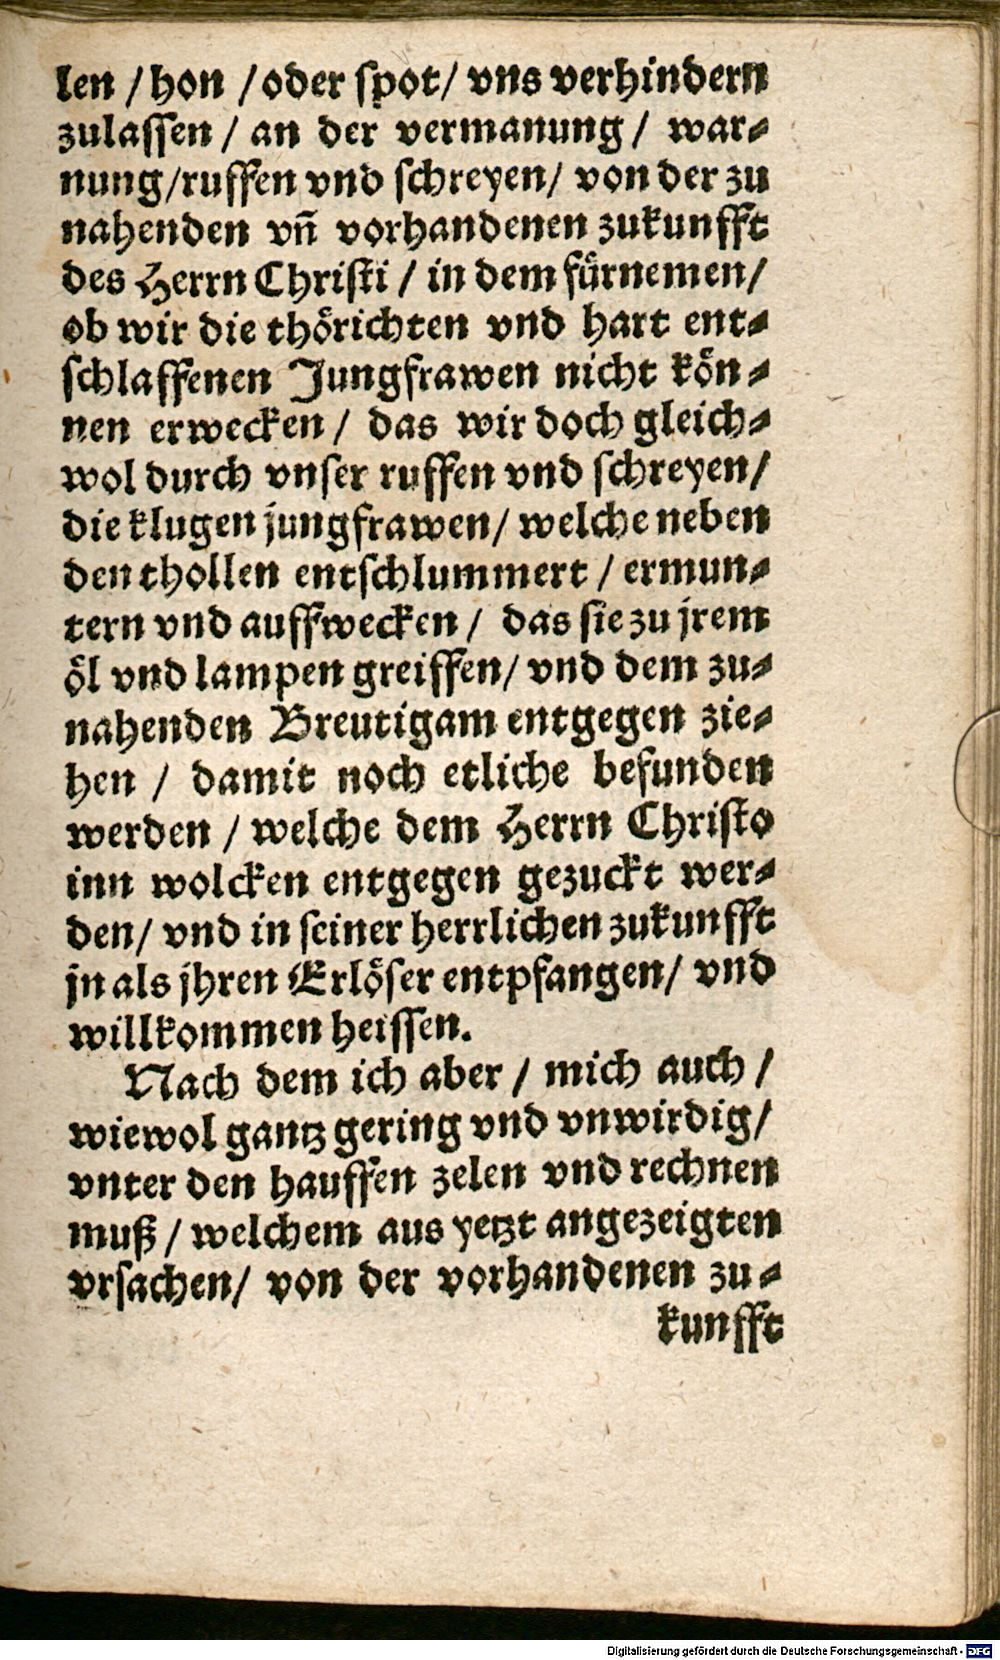 len / hon / oder spot / vns verhindern
zulassen / an der vermanung / war⸗
nung / ruffen vnd schreyen / von der zu
nahenden vñ vorhandenen zukunfft
des Herrn Christi / in dem fürnemen /
ob wir die thörichten vnd hart ent⸗
schlaffenen Jungfrawen nicht kön⸗
nen erwecken / das wir doch gleich⸗
wol durch vnser ruffen vnd schreyen /
die klugen jungfrawen / welche neben
den thollen entschlummert / ermun⸗
tern vnd auffwecken / das sie zu jrem
öl vnd lampen greiffen / vnd dem zu⸗
nahenden Breutigam entgegen zie⸗
hen / damit noch etliche befunden
werden / welche dem Herrn Christo
inn wolcken entgegen gezuckt wer⸗
den / vnd in seiner herrlichen zukunfft
jn als jhren Erlöser entpfangen / vnd
willkommen heissen.
Nach dem ich aber / mich auch /
wiewol gantz gering vnd vnwirdig /
vnter den hauffen zelen vnd rechnen
muß / welchem aus yetzt angezeigten
vrsachen / von der vorhandenen zu⸗
kunfft
Digitalisierung gefördert durch die Deutsche Forschungsgemeinschaft - DFG